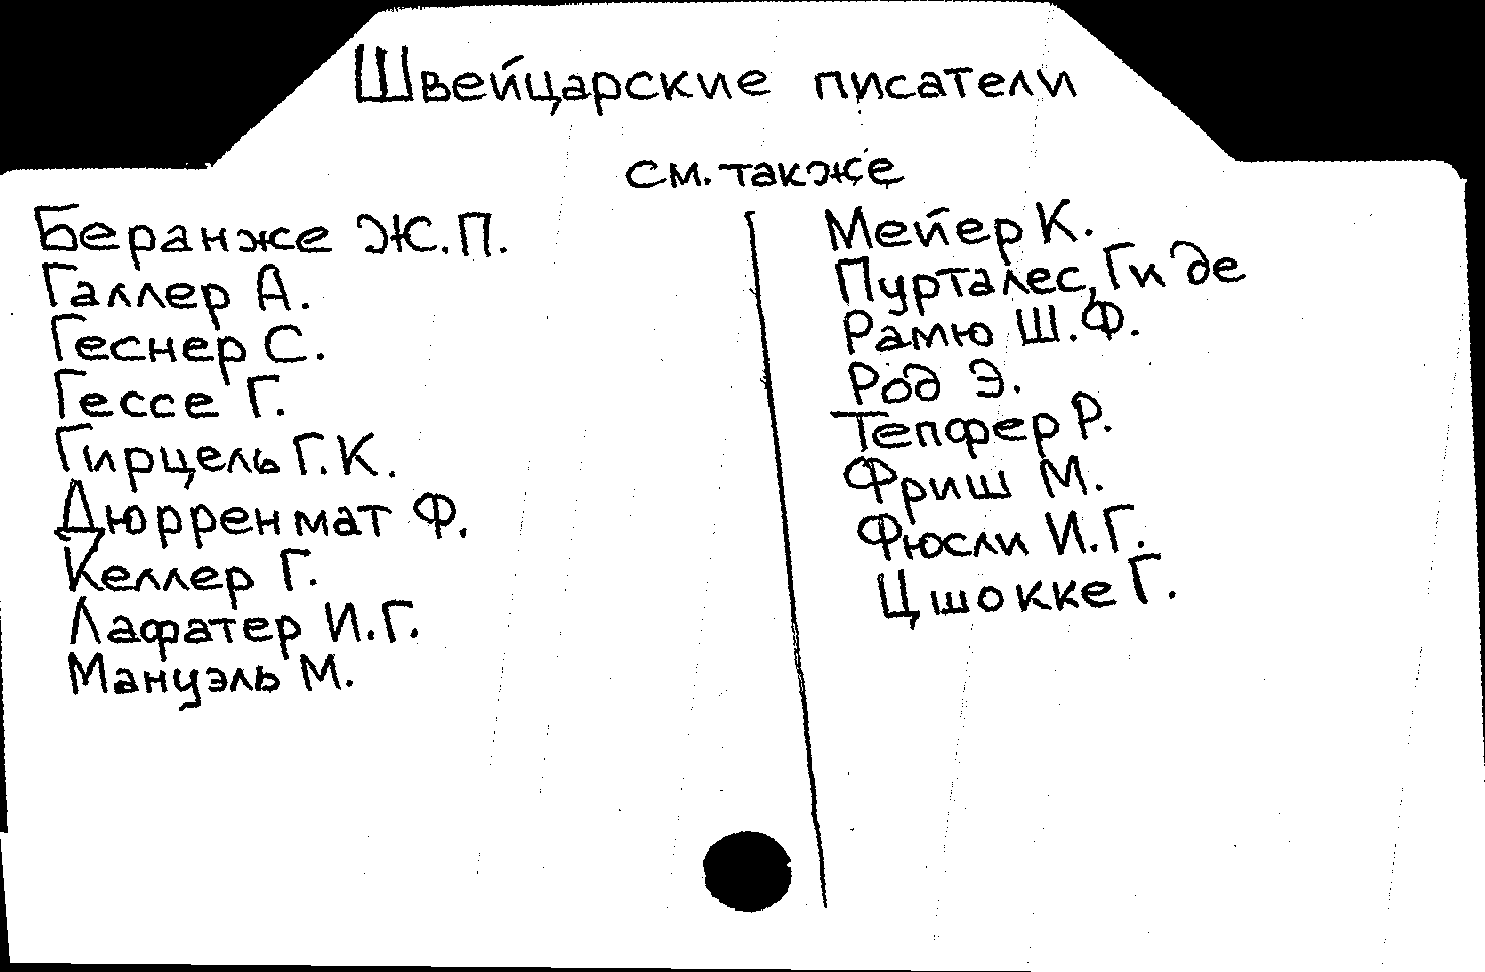 Швейцарские писатели
см. также
Беранже Ж.П.
Галлер А.
Геснер С.
Гессе Г.
Гирцель Г.К.
Дюрренмат Ф.
Келлер Г.
Лафатер И.Г.
Мануэль М.
Мейер К.
Пурталес, Ги де
Рамю Ш.Ф.
Род Э.
Тепфер Р.
Фриш М.
Фюсли И.Г.
Цшокке Г.